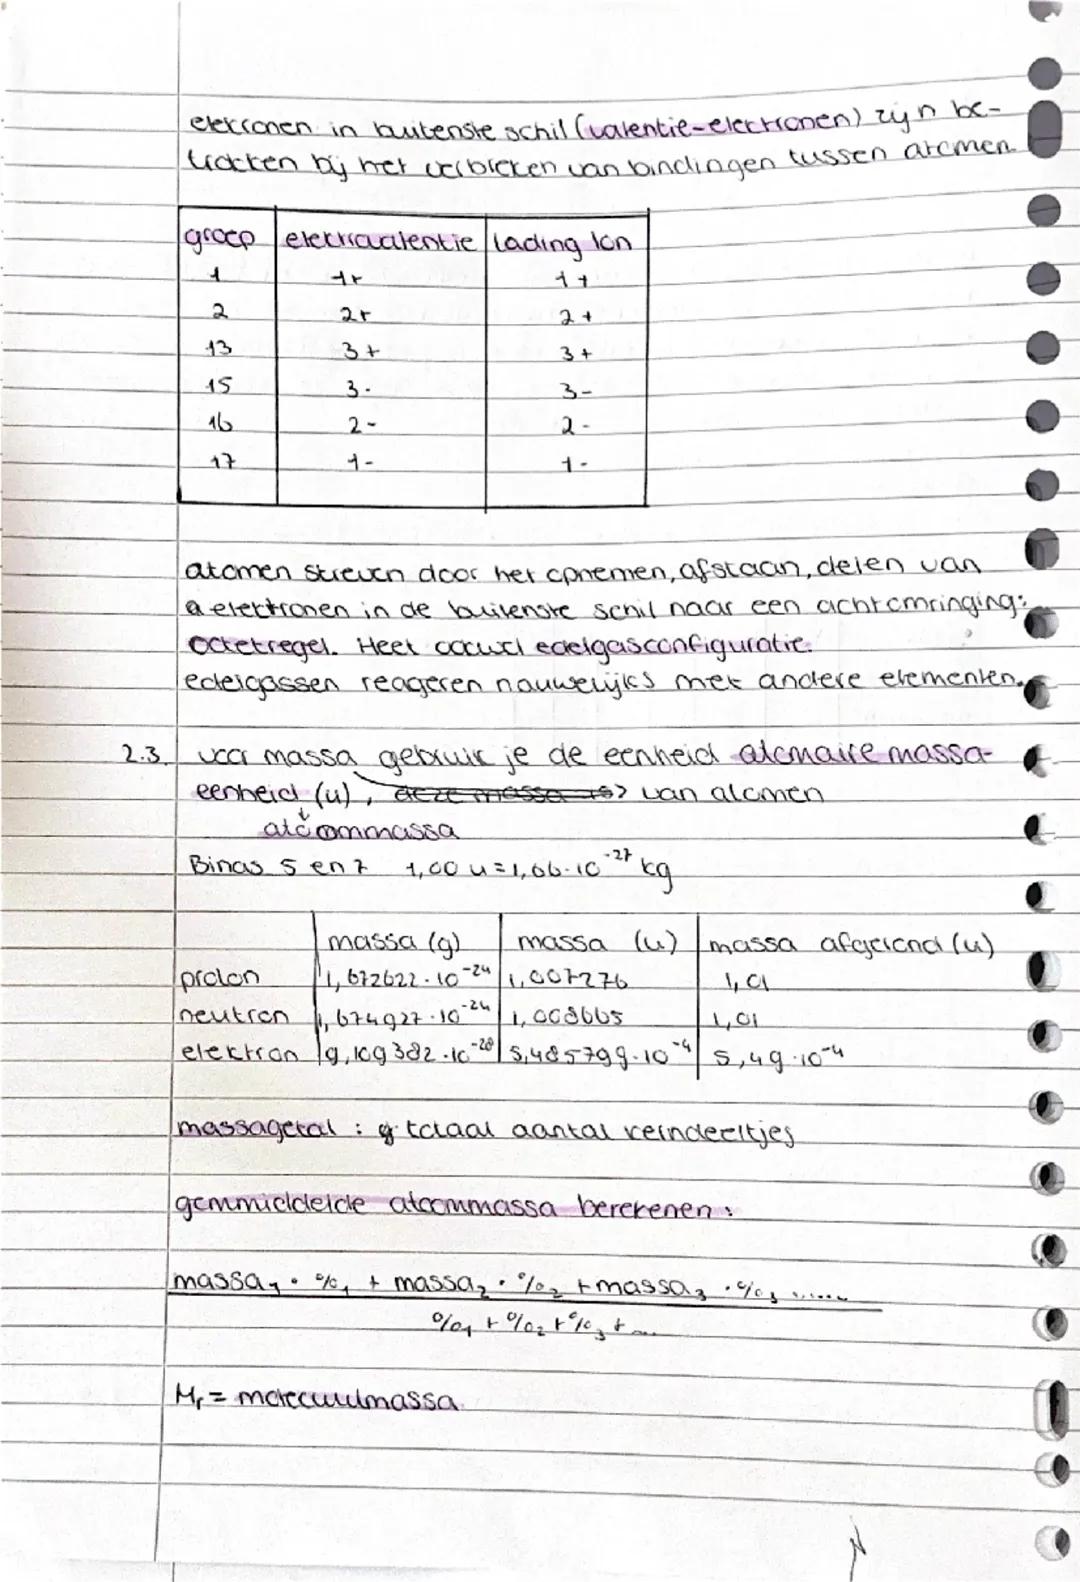 electronen in buitenste schil (valentie-electronen) zijn be-
trokken bij het verbreken van bindingen tussen atomen
groep elektrovalentie lading ion
1 1+ 1+
2 2+ 2+
13 3+ 3+
15 3- 3-
16 2- 2-
17 1- 1-
atomen streven door het opnemen, afstaan, delen van
electronen in de buitenste schil naar een achtomringing:
octetregel. Heet oowel edelgasconfiguratie.
edelgassen reageren nauwelijks met andere elementen.
2.3. voor massa gebruik je de eenheid atomaire massa-
eenheid (u), deze massa is van atomen
atoommassa
Binas 5 en 7 1,00 u = 1,66·10⁻²⁷ kg
massa (g) massa (u) massa afgerond (u)
proton 1,672622·10⁻²⁴ 1,007276 1,01
neutron 1,674927·10⁻²⁴ 1,008665 1,01
elektron 9,109382·10⁻²⁸ 5,485799·10⁻⁴ 5,49·10⁻⁴
massagetal : totaal aantal kerndeeltjes
gemmiddelde atoommassa berekenen:
massa₁ · %₁ + massa₂ · %₂ + massa₃ · %₃ ......
%₁ + %₂ + %₃ + ...
Mᵣ = molecuulmassa.